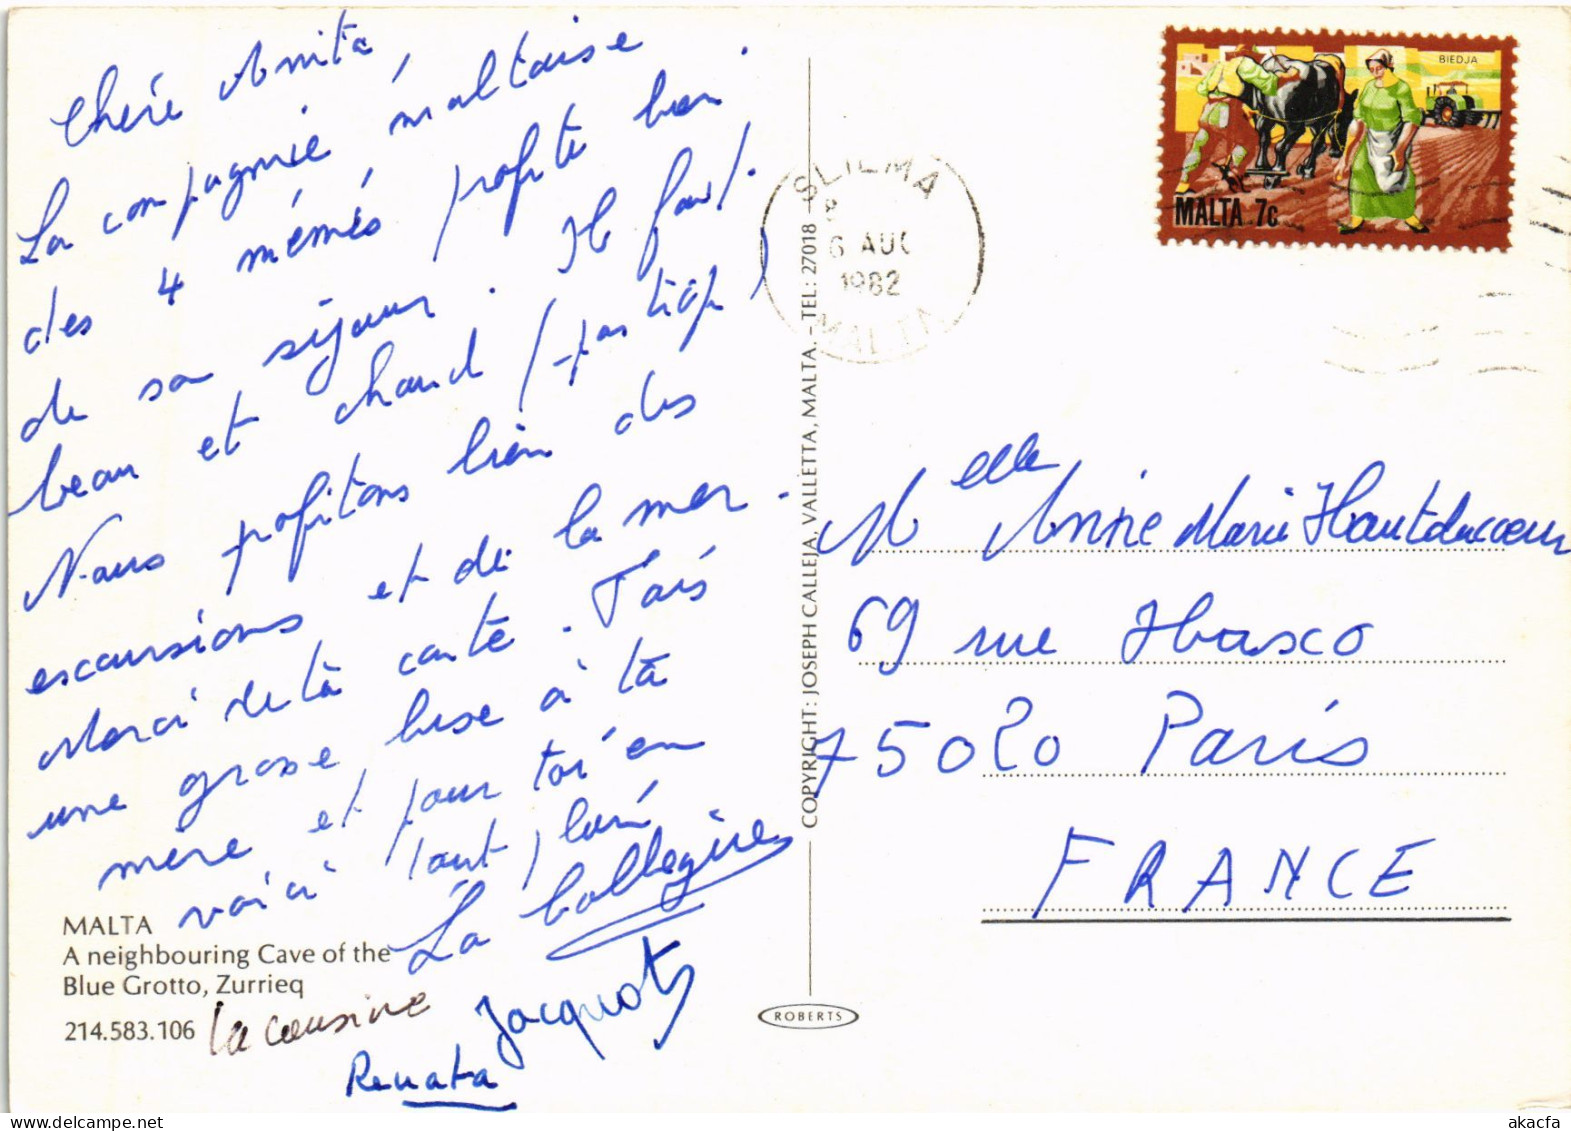 Chère Anita,
La compagnie maltaise
des 4 mémés profite bien
de son séjour. Il fait
beau et chaud (pas trop)
Nous profitons bien des
excursions et de la mer.
Merci de ta carte. Fais
une grosse bise à ta
mère et pour toi en
voici tout plein
La Collégienne
Jacquot
la cousine
Renata
MALTA
A neighbouring Cave of the
Blue Grotto, Zurrieq
214.583.106
COPYRIGHT: JOSEPH CALLEJA, VALLETTA, MALTA. - TEL: 27018
ROBERTS
BIEDJA
MALTA 7c
SLIEMA
6 AUG
1982
MALTA
Melle Annie Marie
69 rue
75020 Paris
FRANCE
akacfa